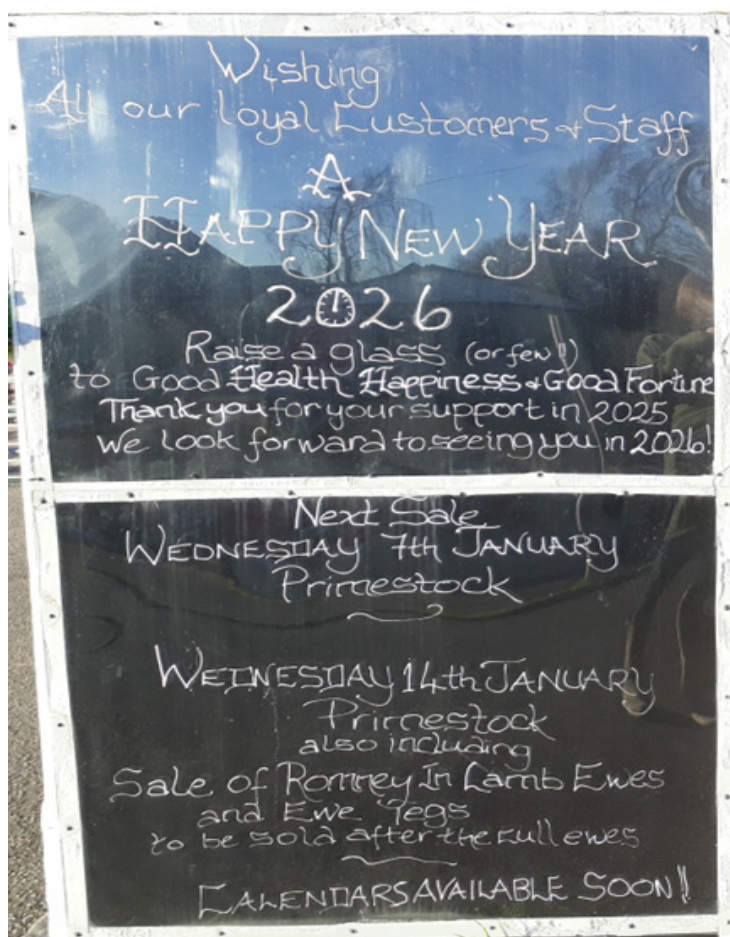 Wishing
All our Loyal Customers & Staff
A
HAPPY NEW YEAR
2026
Raise a glass (or few!!)
to Good Health Happiness & Good Fortune
Thank you for your support in 2025
We look forward to seeing you in 2026!
Next Sale
WEDNESDAY 7th JANUARY
Primestock
WEDNESDAY 14th JANUARY
Primestock
also including
Sale of Romney In Lamb Ewes
and Ewe Tegs
to be sold after the cull ewes
CALENDARS AVAILABLE SOON!!